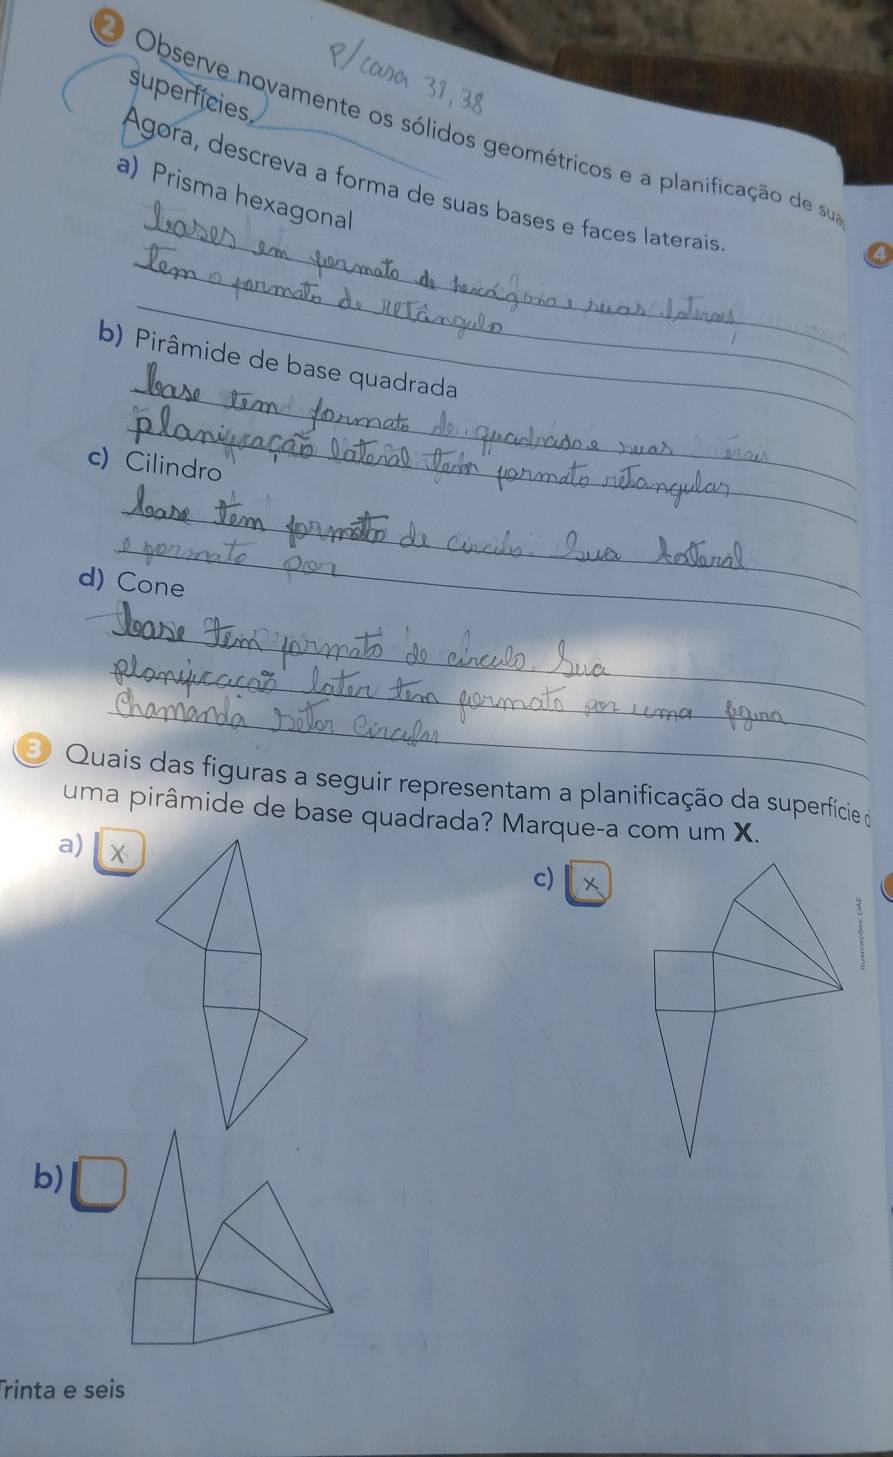 P/ casa 37, 38
2 Observe novamente os sólidos geométricos e a planificação de sua
superfícies.
Agora, descreva a forma de suas bases e faces laterais.
4
a) Prisma hexagonal
bases em formato de hexágono e suas laterais
tem o formato de retângulo
b) Pirâmide de base quadrada
base tem formato de quadrado e suas
planificação lateral tem formato retangular
c) Cilindro
base tem formato de circulo. Sua lateral
e formato por
d) Cone
base tem formato de circulo. Sua
planificacão later tem formato por uma figura
chamanda setor circular
3 Quais das figuras a seguir representam a planificação da superfície d
uma pirâmide de base quadrada? Marque-a com um X.
a) X
c) X
Ilustrações: DAE
b)
Trinta e seis